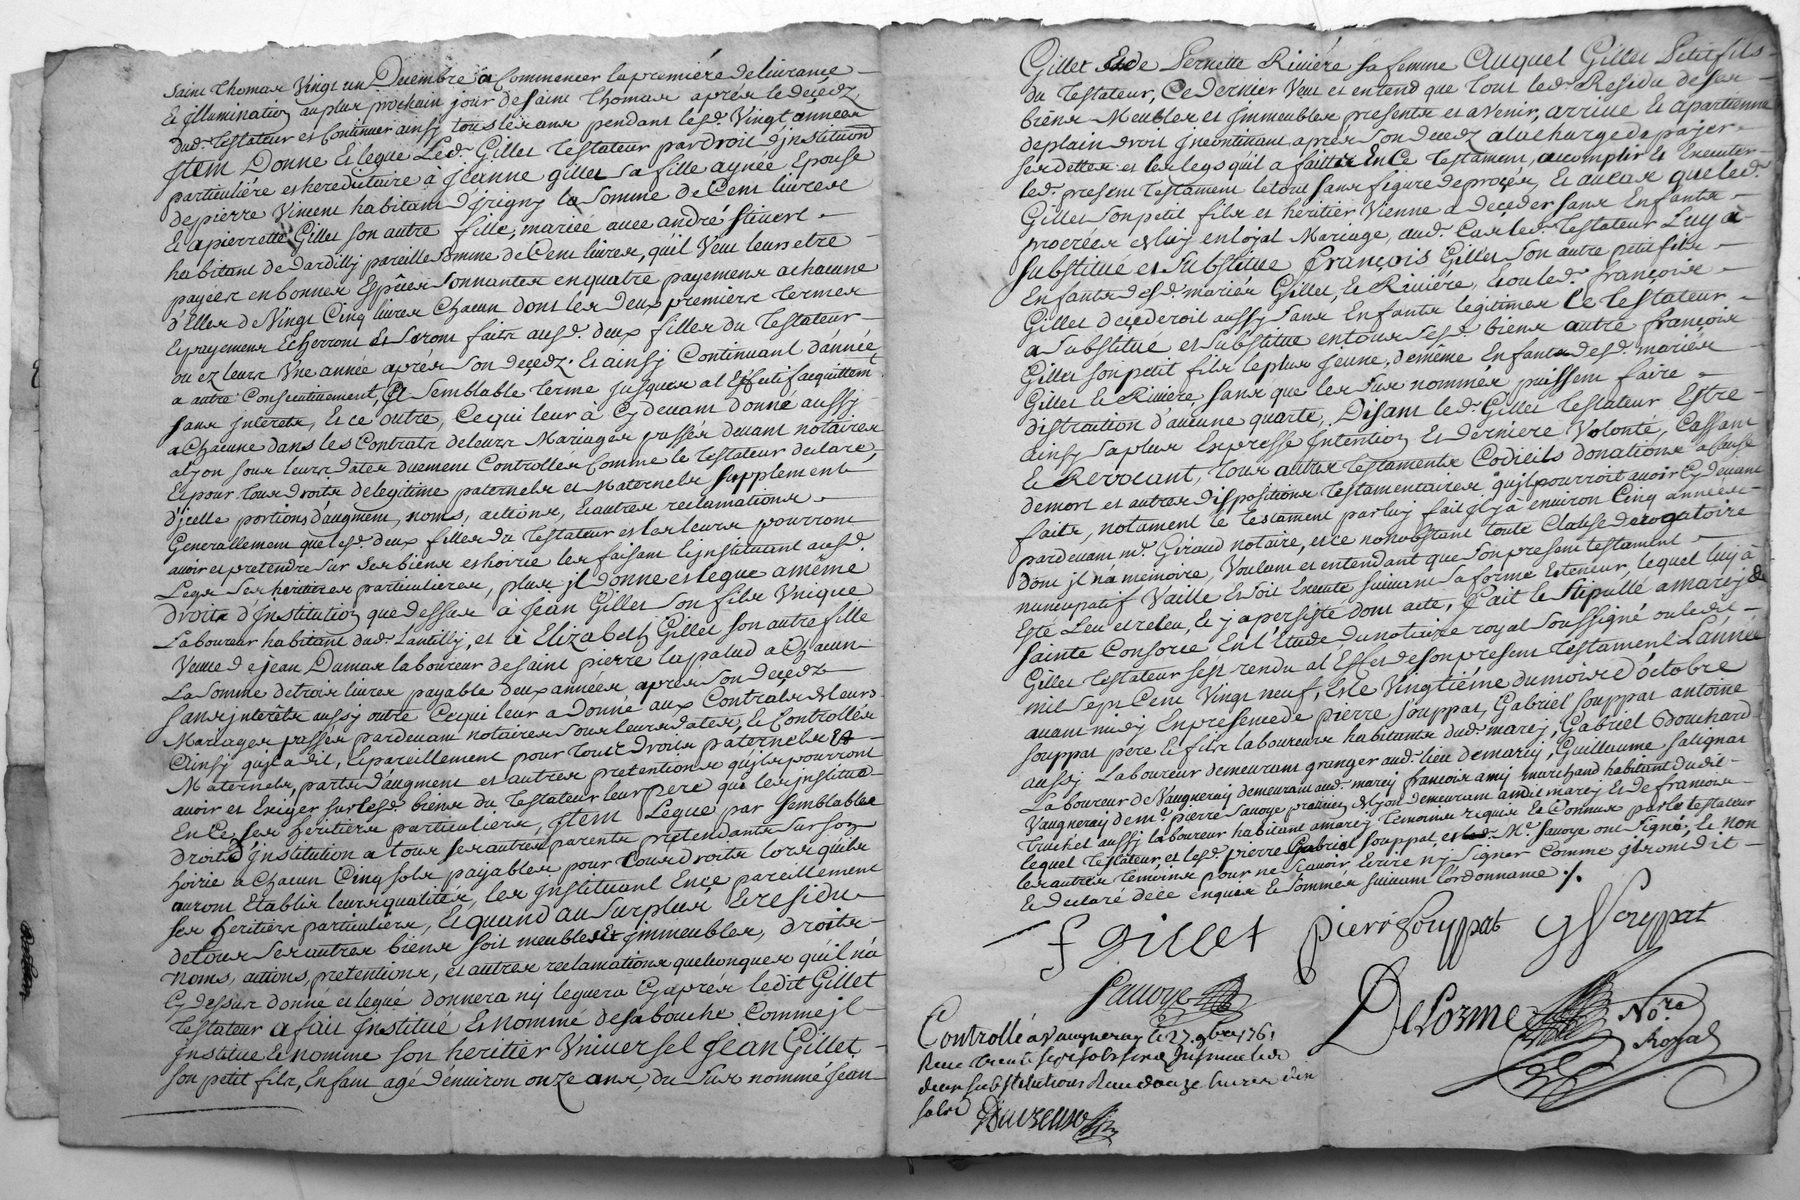 saint Thomas Vingt un Decembre a Commencer la premiere delivrance
Et illumination au plus prochain jour de saint Thomas apres le decedz
dud. testateur et Continuer ainsy tous les ans pendant lesd. Vingt années
Item Donne Et legue Led. Gillet Testateur par droit d'institution
particuliére et hereditaire à Jeanne gillet sa fille aynée, Epouse
de pierre Vincent habitant d'jrigny la somme de Cent livres
Et a pierrette Gillet son autre fille, mariée avec andré
habitant de dardilly pareille somme de Cent livres, quil Veut leurs etre
payéés en bonnes Espêces sonnantes en quatre payemens a chacune
d'Elles de Vingt Cinq livres Chacun dont les deux premiers termes
Et payemens Echerront Et seront faits ausd. deux filles du Testateur
ou ez leurs Une année aprés son decedz. Et ainsy Continuant d'année
a autre Consecutivement, Et semblable terme jusques a l'Effectif acquittem.t
sans jnterets, Et ce outre, Ce qui leur à Cy devant donné aussy
a Chacune dans les Contrats de leurs Mariages passés devant notaires
a lyon sous leurs dates duement Controllés Comme le testateur declare,
Et pour tous droits de legitime paternels et Maternels supplement
d'jcelle portions d'augment, noms, actions, Et autres reclamations
Generallement que lesd. deux filles du Testateur et les leurs pourront
avoir et pretendre sur ses biens et hoirie les faisant Et jnstituant ausd.
Legs ses heritieres particulieres, plus jl donne et legue a même
droits d'Institution que dessus à Jean Gillet son fils Vnique
Laboureur habitant dud. Lantilly, et à Elizabeth Gillet son autre fille
Veuve de jean Dumas laboureur de saint pierre la palud a Chacun
La somme de trois livres payable deux années apres son decedz
sans jnterêts aussy outre Ce qui leur a Donné aux Contrats de leurs
Mariages passés pardevant notaires sous leurs dates, Et Controllés
Ainsy quil a dit, Et pareillement pour tous Droits paternels Et
Maternels, parts d'augment et autres pretentions quils pourront
avoir et Exiger sur lesd. biens du Testateur leur pere qui les jnstitue
En Ce ses heritiers particuliers, Jtem Legue par semblables
droits d'jnstitution a tous ses autres parents pretendants sur son
hoirie a Chacun Cinq sols payables pour tous droits lors quils
auront Etablis leurs qualités, les jnstituant En ce pareillement
ses heritiers particuliers, Et quand au surplus Et residu
de tous ses autres biens soit meubles Et jmmeubles, droits
Noms, actions, pretentions, et autres reclamations quelconques quil n'a
Cy dessus donné et legué donnera ny leguera Cy aprés ledit Gillet
Testateur a fait jnstitué Et Nommé de sa bouche Comme jl
jnstitue Et nomme son heritier Vniversel Jean Gillet
son petit fils, Enfant agé d'environ onze ans, du sus nommé Jean
Gillet Et de Pernette Riviére sa femme Auquel Gillet Petit fils
du Testateur, Ce Dernier Veut et entend que Tout led. Residu de ses
biens Meubles et Jmmeubles presents et avenir, arrive Et apartienne
de plain droit jncontinent aprés son decedz a la charge de payer
ses dettes et les legs quil a faits En Ce Testament, accomplir Et Executer
led. present Testament le tout sans figure de procés, Et au cas que led.
Gillet son petit fils et heritier Vienne a deceder sans Enfants
procréés en loyal Mariage, aud. Cas led. Testateur Luy a
substitué et substitue françois Gillet son autre petit fils
Enfants desd. mariés Gillet, Et Riviére, Et ou led. françois
Gillet decederoit aussy sans Enfants legitimes Le Testateur
a substitué et substitue en tous sesd. biens autre françois
Gillet son petit fils le plus jeune, de même Enfants desd. mariés
Gillet Et Riviére sans que les sus nommés puissent faire
distraction d'aucune quarte, Disant led. Gillet Testateur Estre
ainsy sa plus Expresse Intention Et derniére Volonté, Cassant
Et Revocant, tous autres Testaments Codicils donations a cause
de mort et autres dispositions Testamentaires quil pourroit avoir Cy devant
faits, notament le Testament par luy fait jl y à environ Cinq années
pardevant me. Giraud notaire, et ce nonobstant toute Clause derogatoire
dont jl n'a memoire, Voulant et entendant que son present testament
nuncupatif Vaille Et soit Execute suivant sa forme Et teneur, lequel luy à
Esté Leu et releu, Et y a persisté dont acte, fait Et Stipullé a marcy de
sainte Consorce En l'Etude du notaire royal soussigné ou ledit
Gillet testateur s'est rendu a l'Effet de son present Testament L'année
mil sept Cent Vingt neuf, Et le Vingtiéme du mois d'octobre
avant midy En presence de pierre souppat, Gabriel souppat antoine
souppat pere Et fils laboureurs habitants dud. marcy, Gabriel Bouchard
aussy Laboureur demeurant granger aud. lieu de marcy, Guillaume salignat
Laboureur de Vaugneray demeurant aud. marcy françois amy marchand habitant dudit
Vaugneray de me. pierre Savoye praticien de lyon demeurant audit marcy Et de françois
truchet aussy laboureur habitant a marcy Temoins requis Et Connus par le testateur
lequel testateur, et lesd. pierre Gabriel souppat, et Me. Savoye ont signé, Et non
les autres temoins pour ne scavoir Ecrire ny signer Comme jls ont dit
Et declaré de ce enquis Et sommés suivant l'ordonnance ./.
f gillet pierre Souppat g Souppat
Savoye
DeLorme No.re
Royal
Controllé a Vaugneray le 27 9bre 1761
Receu trente sept sols six d. Insinué Et
deux substitutions Receu douze livres dix
sols